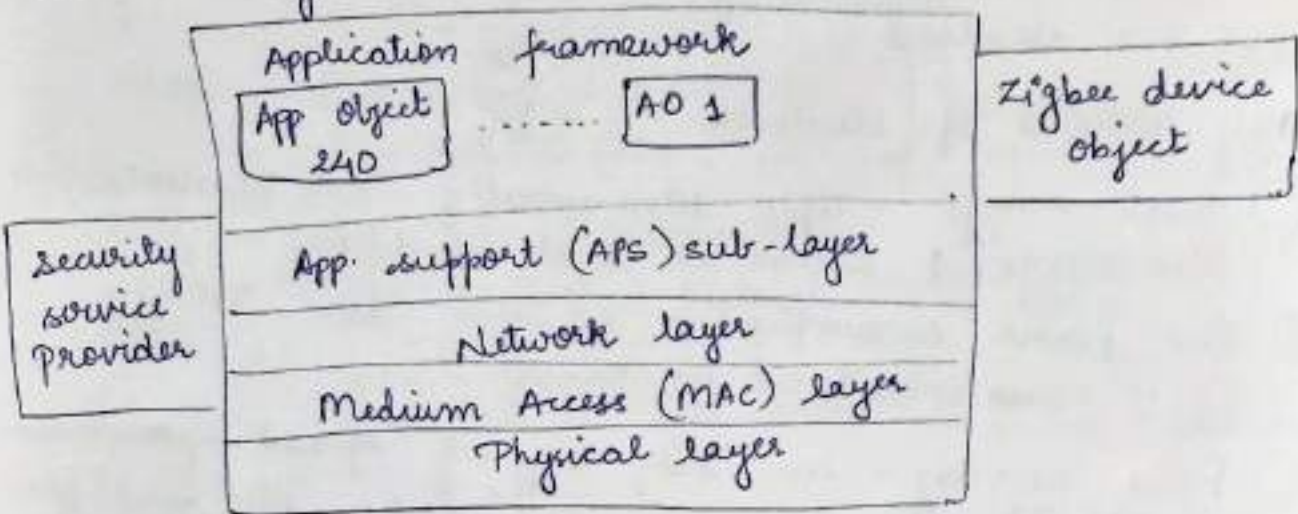 Application framework
App Object
240
........
AO 1
Zigbee device
object
security
service
provider
App. support (APS) sub-layer
Network layer
Medium Access (MAC) layer
Physical layer